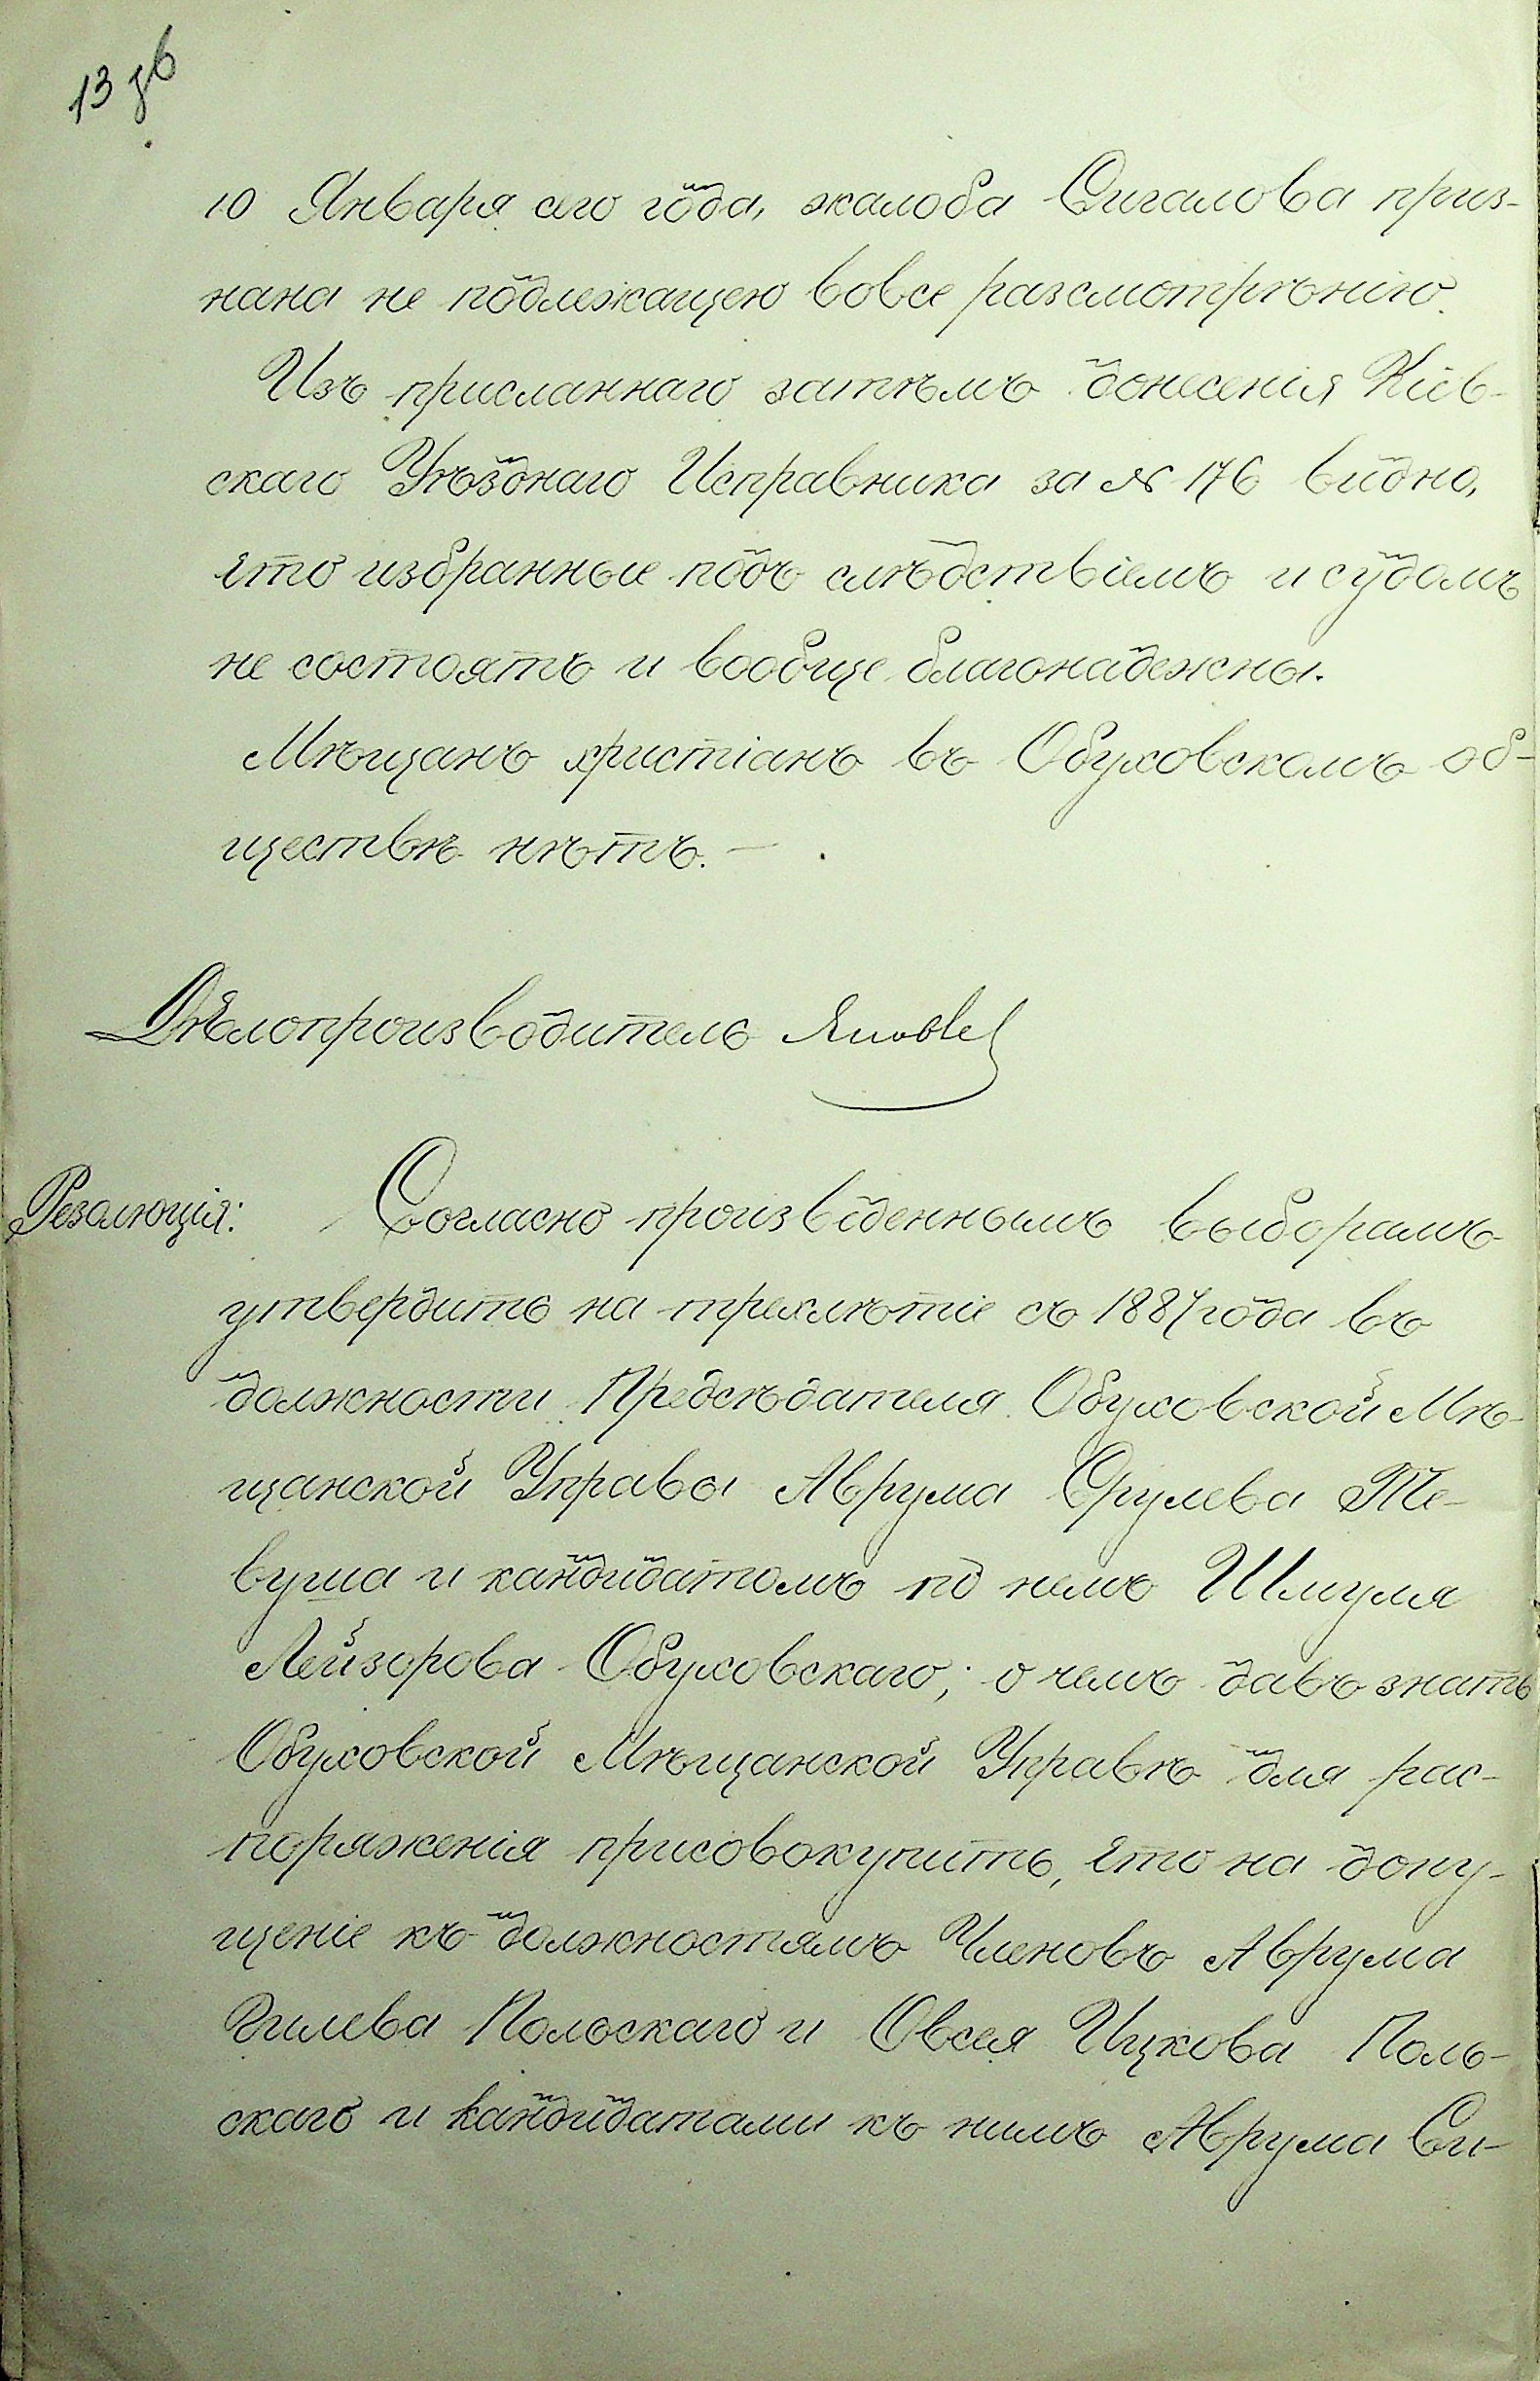 13 зв
10 Января сего года, жалоба Сигалова приз-
нана не подлежащею вовсе разсмотрѣнію.
Изъ присланнаго затѣмъ донесенія Кіев-
скаго Уѣзднаго Исправника за № 176 видно,
что избранные подъ слѣдствіемъ и судомъ
не состоятъ и вообще благонадежны.
Мѣщанъ христіанъ въ Обуховскомъ об-
ществѣ нѣтъ. —
Дѣлопроизводитель
Резолюція: Согласно произведеннымъ выборамъ
утвердить на трехлѣтіе съ 1887 года въ
должности Предсѣдателя Обуховской Мѣ-
щанской Управы Аврума Срулева Те-
вуша и кандидатомъ по немъ Шмуля
Лейзорова Обуховскаго; о чемъ давъ знать
Обуховской Мѣщанской Управѣ для рас-
поряженія присовокупить, что на допу-
щеніе къ должностямъ Членовъ Аврума
Польскаго и Овсея Ицкова Поль-
скаго и кандидатами къ нимъ Аврума Си-